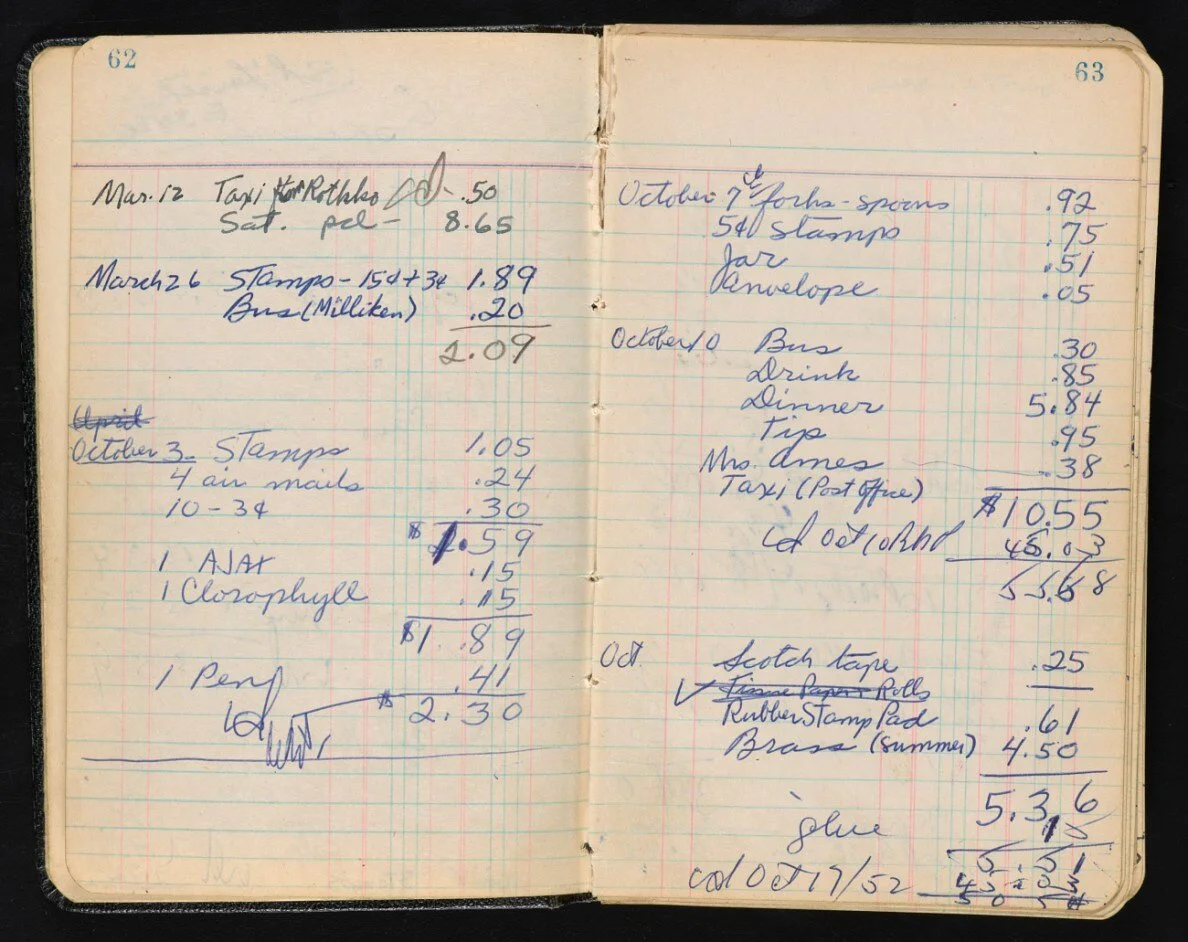 62
Mar. 12 Taxi for Rothko .50
Sat. pd — 8.65
March 26 Stamps - 15¢ + 3¢ 1.89
Bus (Milliken) .20
2.09
April
October 3 - Stamps 1.05
4 air mails .24
10 - 3¢ .30
$1.59
1 AJAX .15
1 Clorophyll .15
$1.89
1 Pen .41
$2.30
63
October 7th forks - spoons .92
5¢ Stamps .75
Jar .51
Anvelope .05
October 10 Bus .30
Drink .85
Dinner 5.84
Tip .95
Mrs. Ames .38
Taxi (Post Office)
$10.55
cd Oct 10 45.03
55.68
Oct. Scotch tape .25
Tissue Paper + Rolls
Rubber Stamp Pad .61
Brass (Summer) 4.50
5.36
glue
5.51
cd Oct 17/52